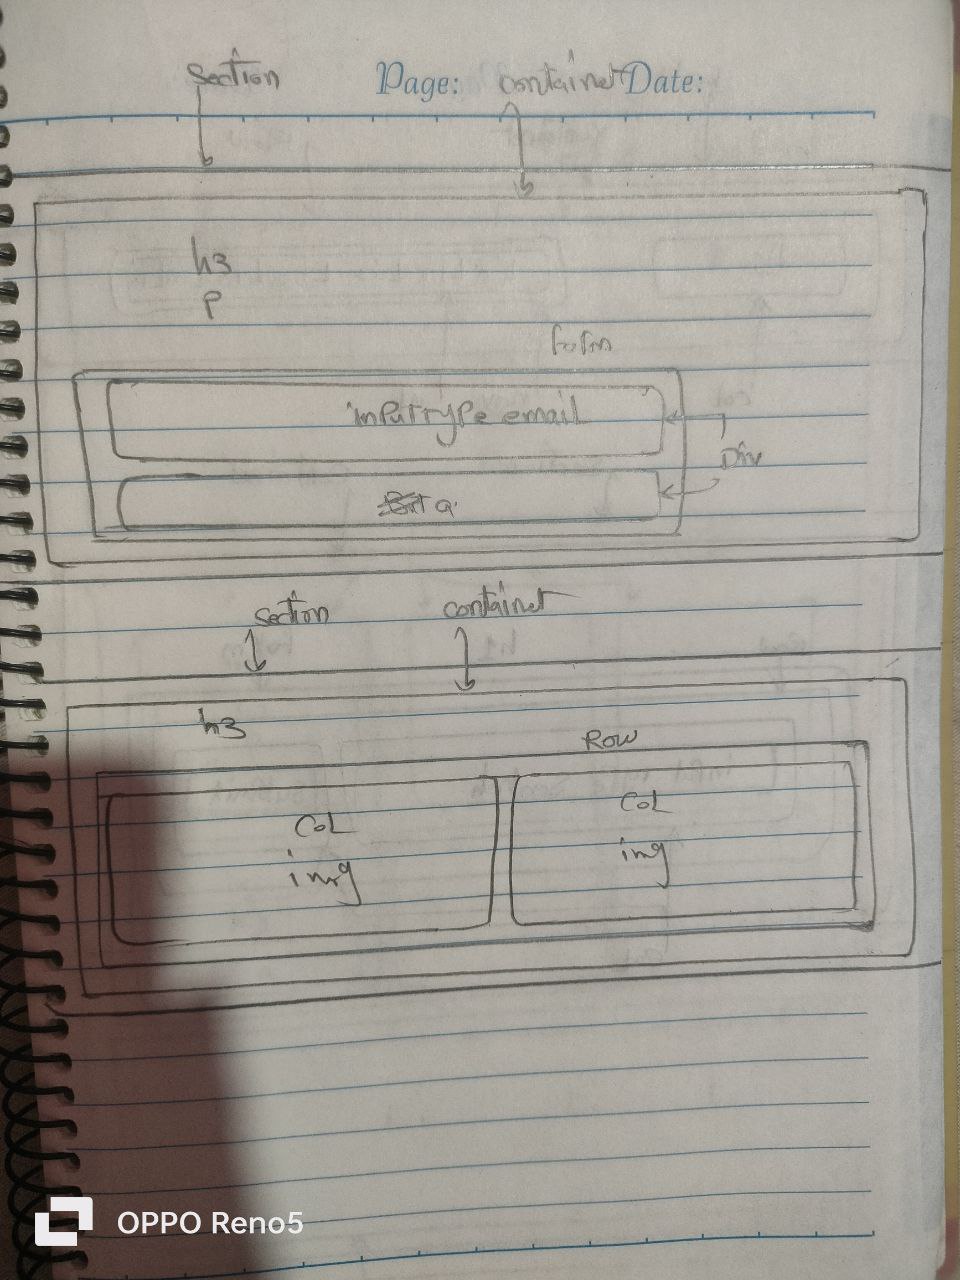 section Page: container Date:
h3
P
form
input type email
Div
a
section container
h3
Row
Col Col
img img
OPPO Reno5